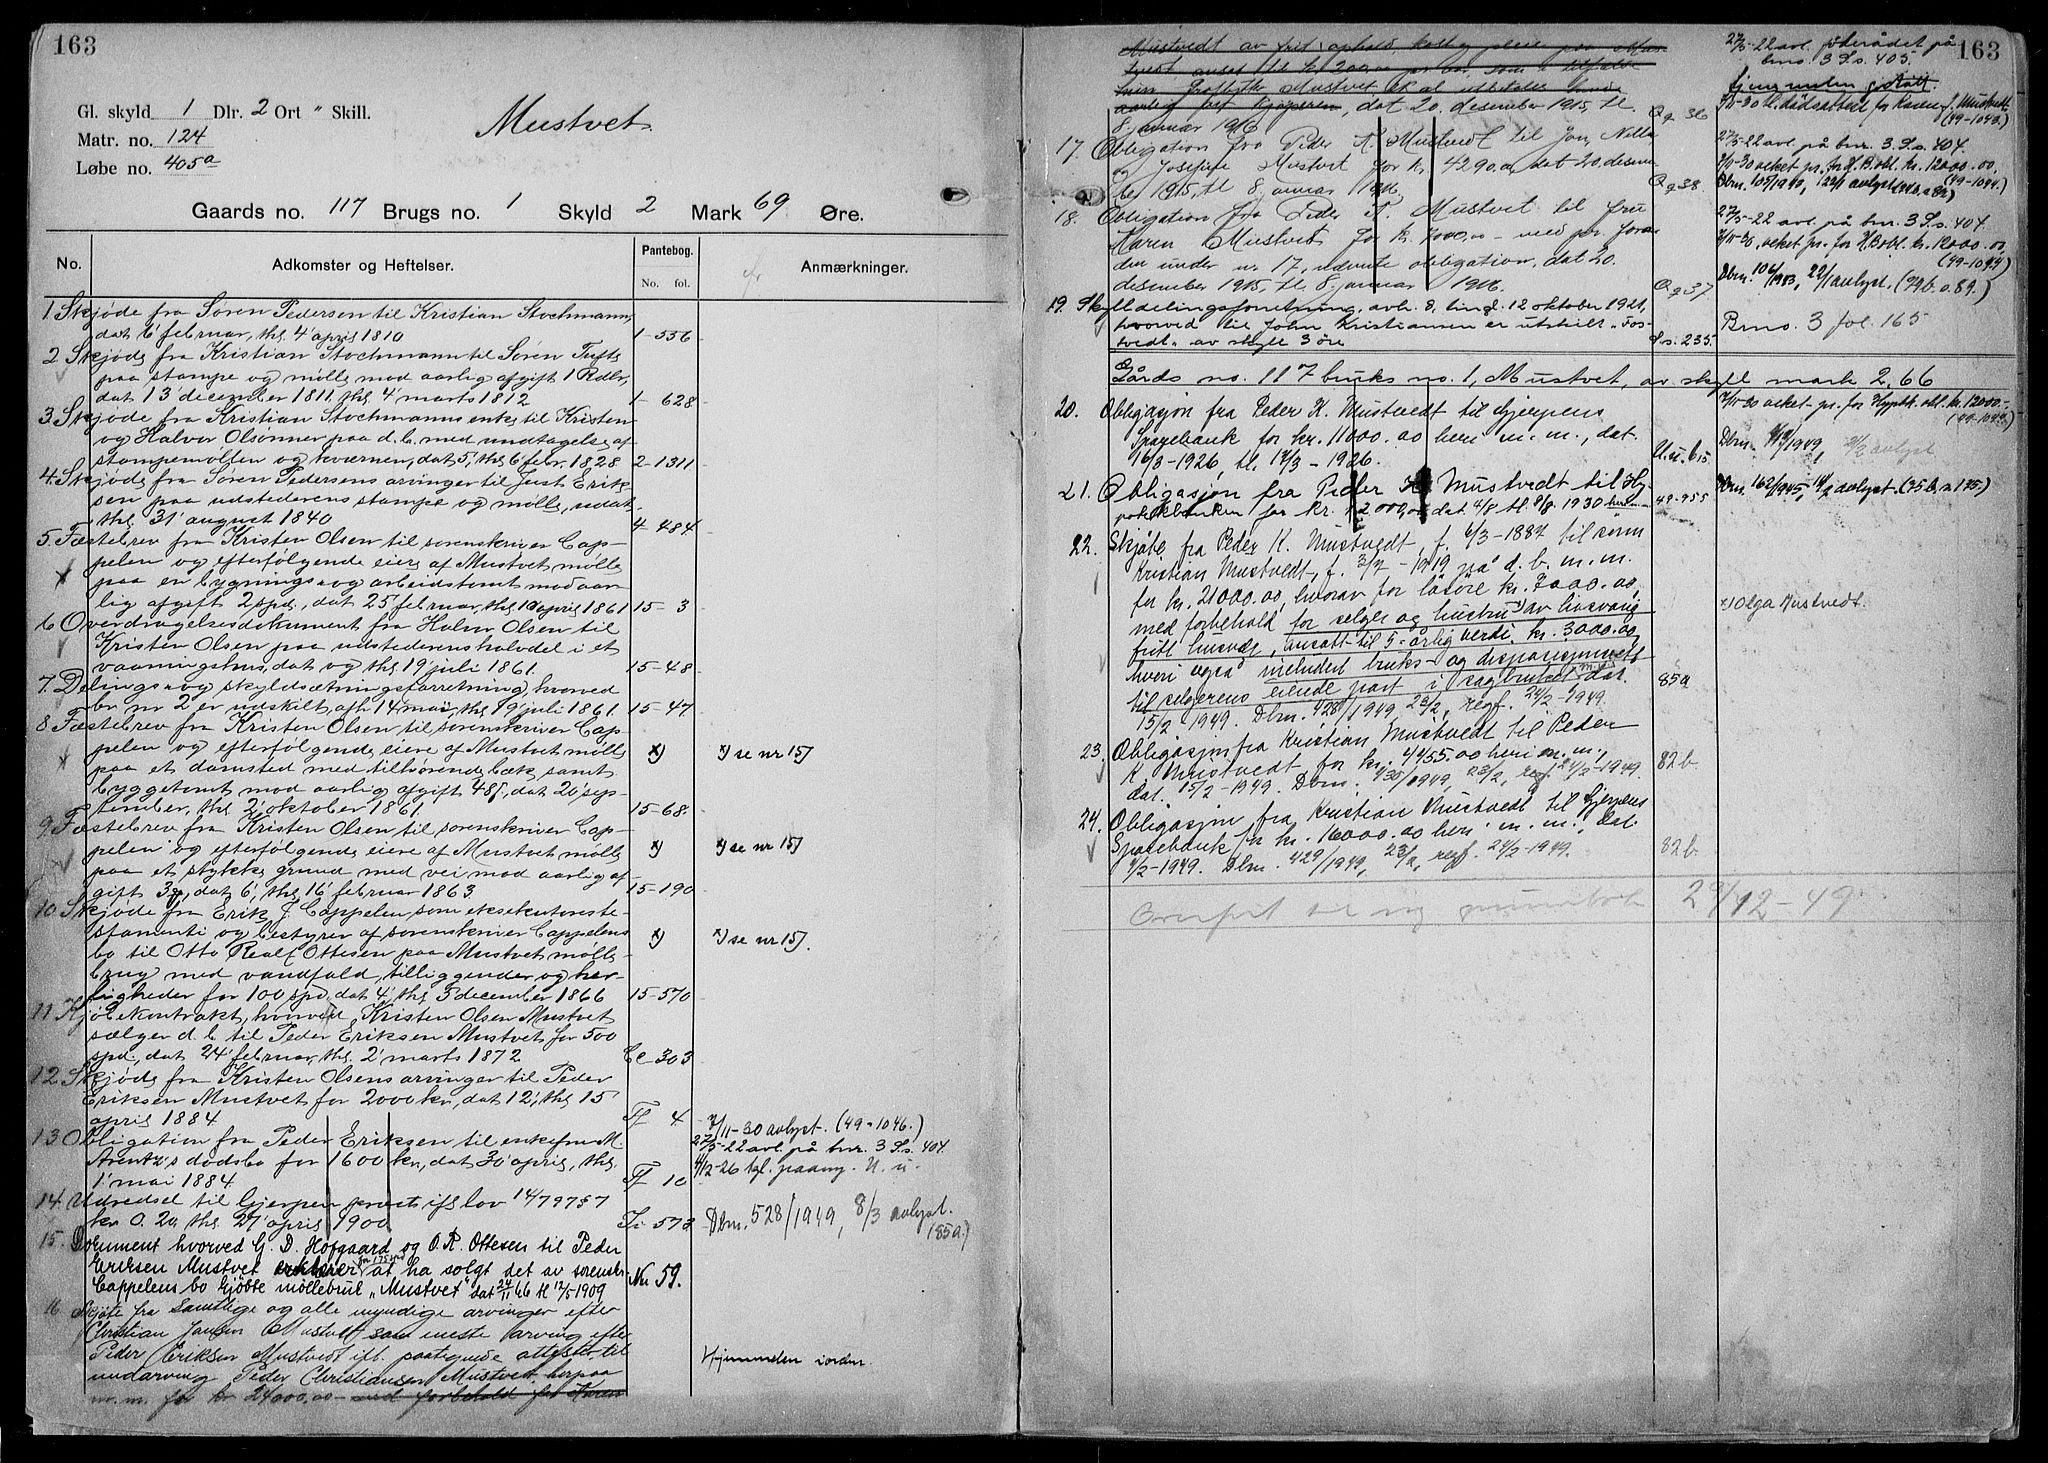 163
Gl. skyld 1 Dlr. 2 Ort " Skill.
Matr. no. 124
Løbe no. 405a
Mustvet
Gaards no. 117 Brugs no. 1 Skyld 2 Mark 69 Øre.
No. Adkomster og Heftelser. Pantebog. No. fol. Anmærkninger.
1. Skjøde fra Søren Pedersen til Kristian Stochmann,
dat 6' februar, thl. 4' april 1810 1-556
2. Skjøde fra Kristian Stochmann til Søren Tufte
paa stampe og mølle mod aarlig afgift 1 Rdlr,
dat 13' december 1811, thl. 4' marts 1812 1-628
3. Skjøde fra Kristian Stochmanns enke til Kristen
og Halvor Olsønner paa d. b. med undtagelse af
stampemøllen og kværnen, dat 5', thl. 6' febr. 1828 2-1311
4. Skjøde fra Søren Pedersens arvinger til Just Erik-
sen paa udstederens stampe og mølle, udat.
thl. 31' august 1840 4-484
5. Fæstebrev fra Kristen Olsen til sorenskriver Cap-
pelen og efterfølgende eiere af Mustvet mølle
paa en bygnings- og arbeidstomt mod aar-
lig afgift 2 spd., dat 25' februar, thl. 10' april 1861 15-3
6. Overdragelsesdokument fra Halvor Olsen til
Kristen Olsen paa udstederens halvdel i et
vaaningshus, dat og thl. 19' juli 1861. 15-48
7. Delings- og skyldsætningsforretning, hvorved
br. nr 2 er udskilt, afh. 14' mai, thl. 19' juli 1861. 15-47
8. Fæstebrev fra Kristen Olsen til sorenskriver Cap-
pelen og efterfølgende eiere af Mustvet mølle x) x) se nr 15)
paa et damsted med tilhørende bæk samt
byggetomt mod aarlig afgift 48 , dat 20' sep-
tember, thl. 2' oktober 1861. 15-68.
9. Fæstebrev fra Kristen Olsen til sorenskriver Cap-
pelen og efterfølgende eiere af Mustvet mølle x) x) se nr 15)
paa et stykke grund med vei mod aarlig af-
gift 3 , dat 6', thl. 16' februar 1863 15-190
10. Skjøde fra Erik J. Cappelen som eksekutor teste-
stamenti og bestyrer af sorenskriver Cappelens x) x) se nr 15).
bo til Otto Realf Ottesen paa Mustvet mølle-
brug med vandfald, tilliggender og her-
ligheder for 100 spd. dat 4', thl. 5' december 1866 15-570
11. Kjøbekontrakt, hvorved Kristen Olsen Mustvet
sælger d. b. til Peder Eriksen Mustvet for 500
spd., dat 24' februar, thl. 2' marts 1872 Cc 303
12. Skjøde fra Kristen Olsens arvinger til Peder
Eriksen Mustvet for 2000 kr., dat 12', thl. 15'
april 1884 Ff 4
13. Obligation fra Peder Eriksen til enkefru M. 7/11-30 avlyst. (49-1046.)
Arentz's dødsbo for 1600 kr., dat 30' april, thl. 27/5-22 avl. på bnr. 3 S.s. 404.
1' mai 1884. Ff 10 4/12-26 tgl. paany. U. u.
14. Udredsel til Gjerpen præst ifl. lov 14/7 97 § 7
kr. 0.20, thl. 27' april 1900 573 Dbm. 528/1949, 8/3 avlyst. (85a.)
15. Dokument hvorved G. D. Hofgaard og O. R. Ottesen til Peder
Eriksen Mustvet erklærer at ha solgt det av sorenskr.
Cappelens bo kjøbte møllebruk "Mustvet" dat 24/11 66 tl 12/5 1909 Nn 59.
16. Skjøte fra samtlige og alle myndige arvinger efter
Christian Jansen Mustvedt som eneste arving efter
Peder Eriksen Mustvedt ifl. paategnede attester, til
medarving Peder Christiansen Mustvet, herpaa Hjemmelen iorden.
m. m. for kr 24000,00 med forbehold for Karen
163
Mustvedt av frit ophold, kost og pleie paa Mus-
tvedt anset til kr 200,00 pr aar, som i tilfælde
Mustvet, at utbetales hende
aarlig fast kjøperen, dat 20. desember 1915, tl.
8. januar 1916. Qq 36
27/5-22 avl. føderådet på
bno. 3 S.s. 405.
7/11-30 tl. dødsattest for Karen J. Mustvedt
(49-1043.)
17. Obligation fra Peder K. Mustvedt til Jon, Nella
og Josefine Mustvet for kr. 4290,00, dat 20. desem-
ber 1915, tl. 8. januar 1916. Qq 38.
27/5-22 avl. på bnr. 3 S.s. 404.
7/11-30 veket pr. for H.B. obl. kr. 12000.00.
(49-1044.)
Dbm. 105/1940, 22/1 avlyst
18. Obligation fra Peder K. Mustvet til fru
Karen Mustvet for kr. 4000,00 - med pr. foran
den under nr. 17, nævnte obligation, dat 20.
desember 1915, tl. 8. januar 1916. Qq 37
27/5-22 avl. på bnr. 3 S.s. 404.
7/11-30. veket pr. for H.B. obl. kr. 12000.00
(49-1044)
Dbm. 106/1943, 22/1 avlyst.
19. Skylddelingsforretning, avh. 8, tingl. 12 oktober 1921,
hvorved til John Kristiansen er utskilt "Fos-
tvedt" av skyld 3 øre S.s. 235. Brno. 3 fol. 165
Gårds no. 117 bruks no. 1, Mustvet, av skyld mark 2,66
20. Obligasjon fra Peder K. Mustvedt til Gjerpens
Sparebank for kr. 11000.00 heri m. m., dat.
16/3-1926, tl. 17/3-1926. U.u. 615
7/11-30 veket pr. for Hypbk. obl. kr. 12000.-
(49-1045)
21. Obligasjon fra Peder K. Mustvedt til Hy-
potekbanken for kr. 12000,00 dat 4/8 tl. 8/8 1930 49-955
Dbm. 162/1945, 14/2 avlyst. (75b. 175.)
22. Skjøte fra Peder K. Mustvedt, f. 6/3-1887 til sønn
Kristian Mustvedt, f. 3/7-1919 på d. b. m. m.
for kr. 21000.00, hvorav for løsøre kr. 7000.00,
med forbehold for selger og hustru x) av livsvarig
fritt husvær, ansatt til 5-årlig verdi kr. 3000.00,
heri også inkludert bruks- og disposisjonsrett
til selgerens eiende part i sagbruket m. m. dat.
15/2-1949. Dbm. 428/1949, 23/2, regf. 24/2-1949. 85a
x) Olga Mustvedt.
23. Obligasjon fra Kristian Mustvedt til Peder
K. Mustvedt for kr. 4455.00 heri m. m.,
dat. 15/2-1949. Dbm. 430/1949, 23/2, regf. 24/2-1949. 82b.
24. Obligasjon fra Kristian Mustvedt til Gjerpens
Sparebank for kr. 16000.00 heri m. m., dat.
4/2-1949. Dbm. 429/1949, 23/2, regf. 24/2-1949. 82b.
Overført til ny grunnbok 29/12-49